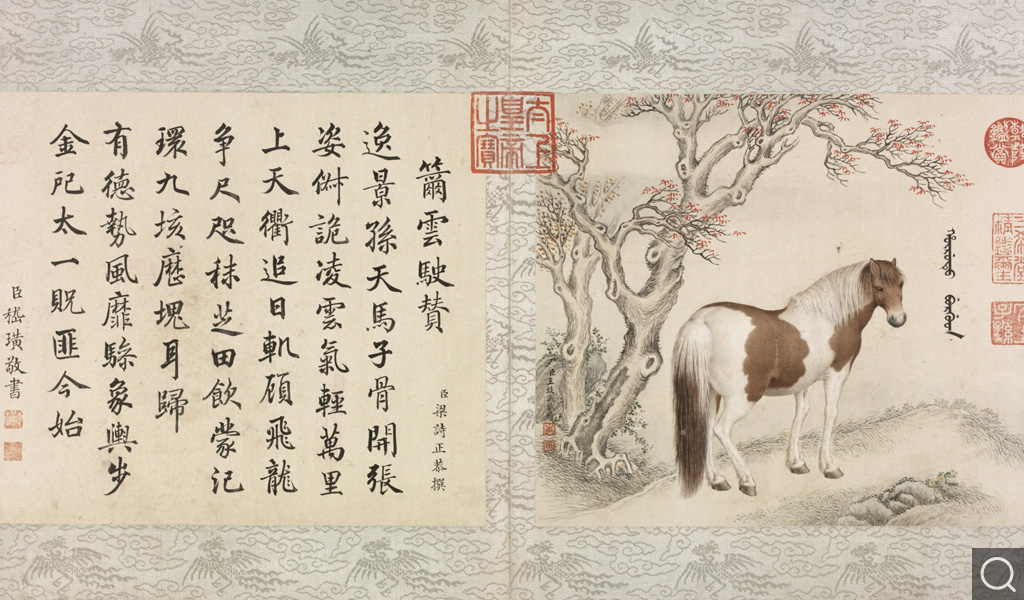 三希堂精鑑璽
宜子孫
太上皇帝之寶
籋雲駛贊
臣梁詩正恭撰
逸景孫天馬子骨開張
姿俶詭凌雲氣輕萬里
上天衢追日軌顧飛龍
争尺咫秣芝田飲蒙汜
環九垓歷塊耳歸
有德勢風靡驂象輿步
金戺太一貺匪今始
臣嵇璜敬書